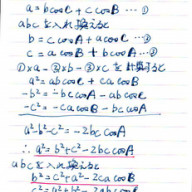 a = bcosC + ccosB …①
abcを入れ換えると
b = ccosA + acosC …②
c = acosB + bcosA …③
①×a − ②×b − ③×c を計算すると
a² = abcosC + cacosB
−b² = −bccosA − abcosC
−c² = −cacosB − bccosA
a²−b²−c² = −2bccosA
∴ a² = b²+c²−2bccosA
abcを入れ換えると
b² = c²+a²−2cacosB
c² = a²+b²−2abcosC